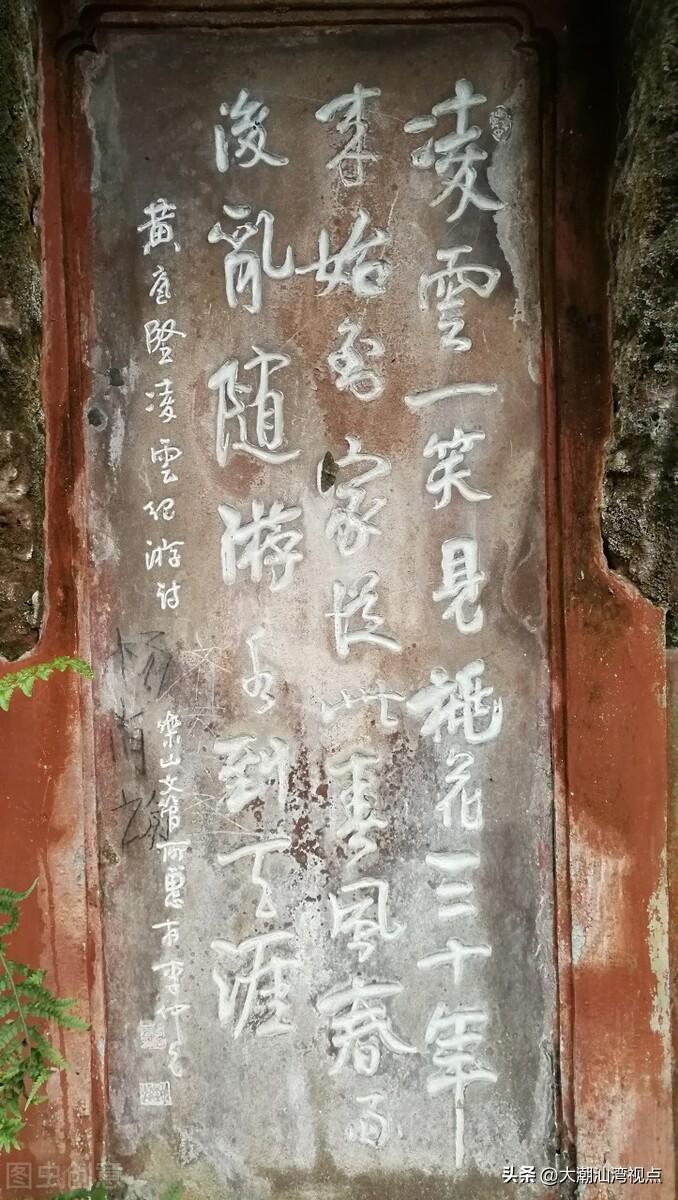 凌雲一笑見桃花三十年
来始到家從此春風春雨
後亂随游水到天涯
黄庭堅凌雲纪游詩
樂山文管所
图虫创意
头条 @大潮汕湾视点